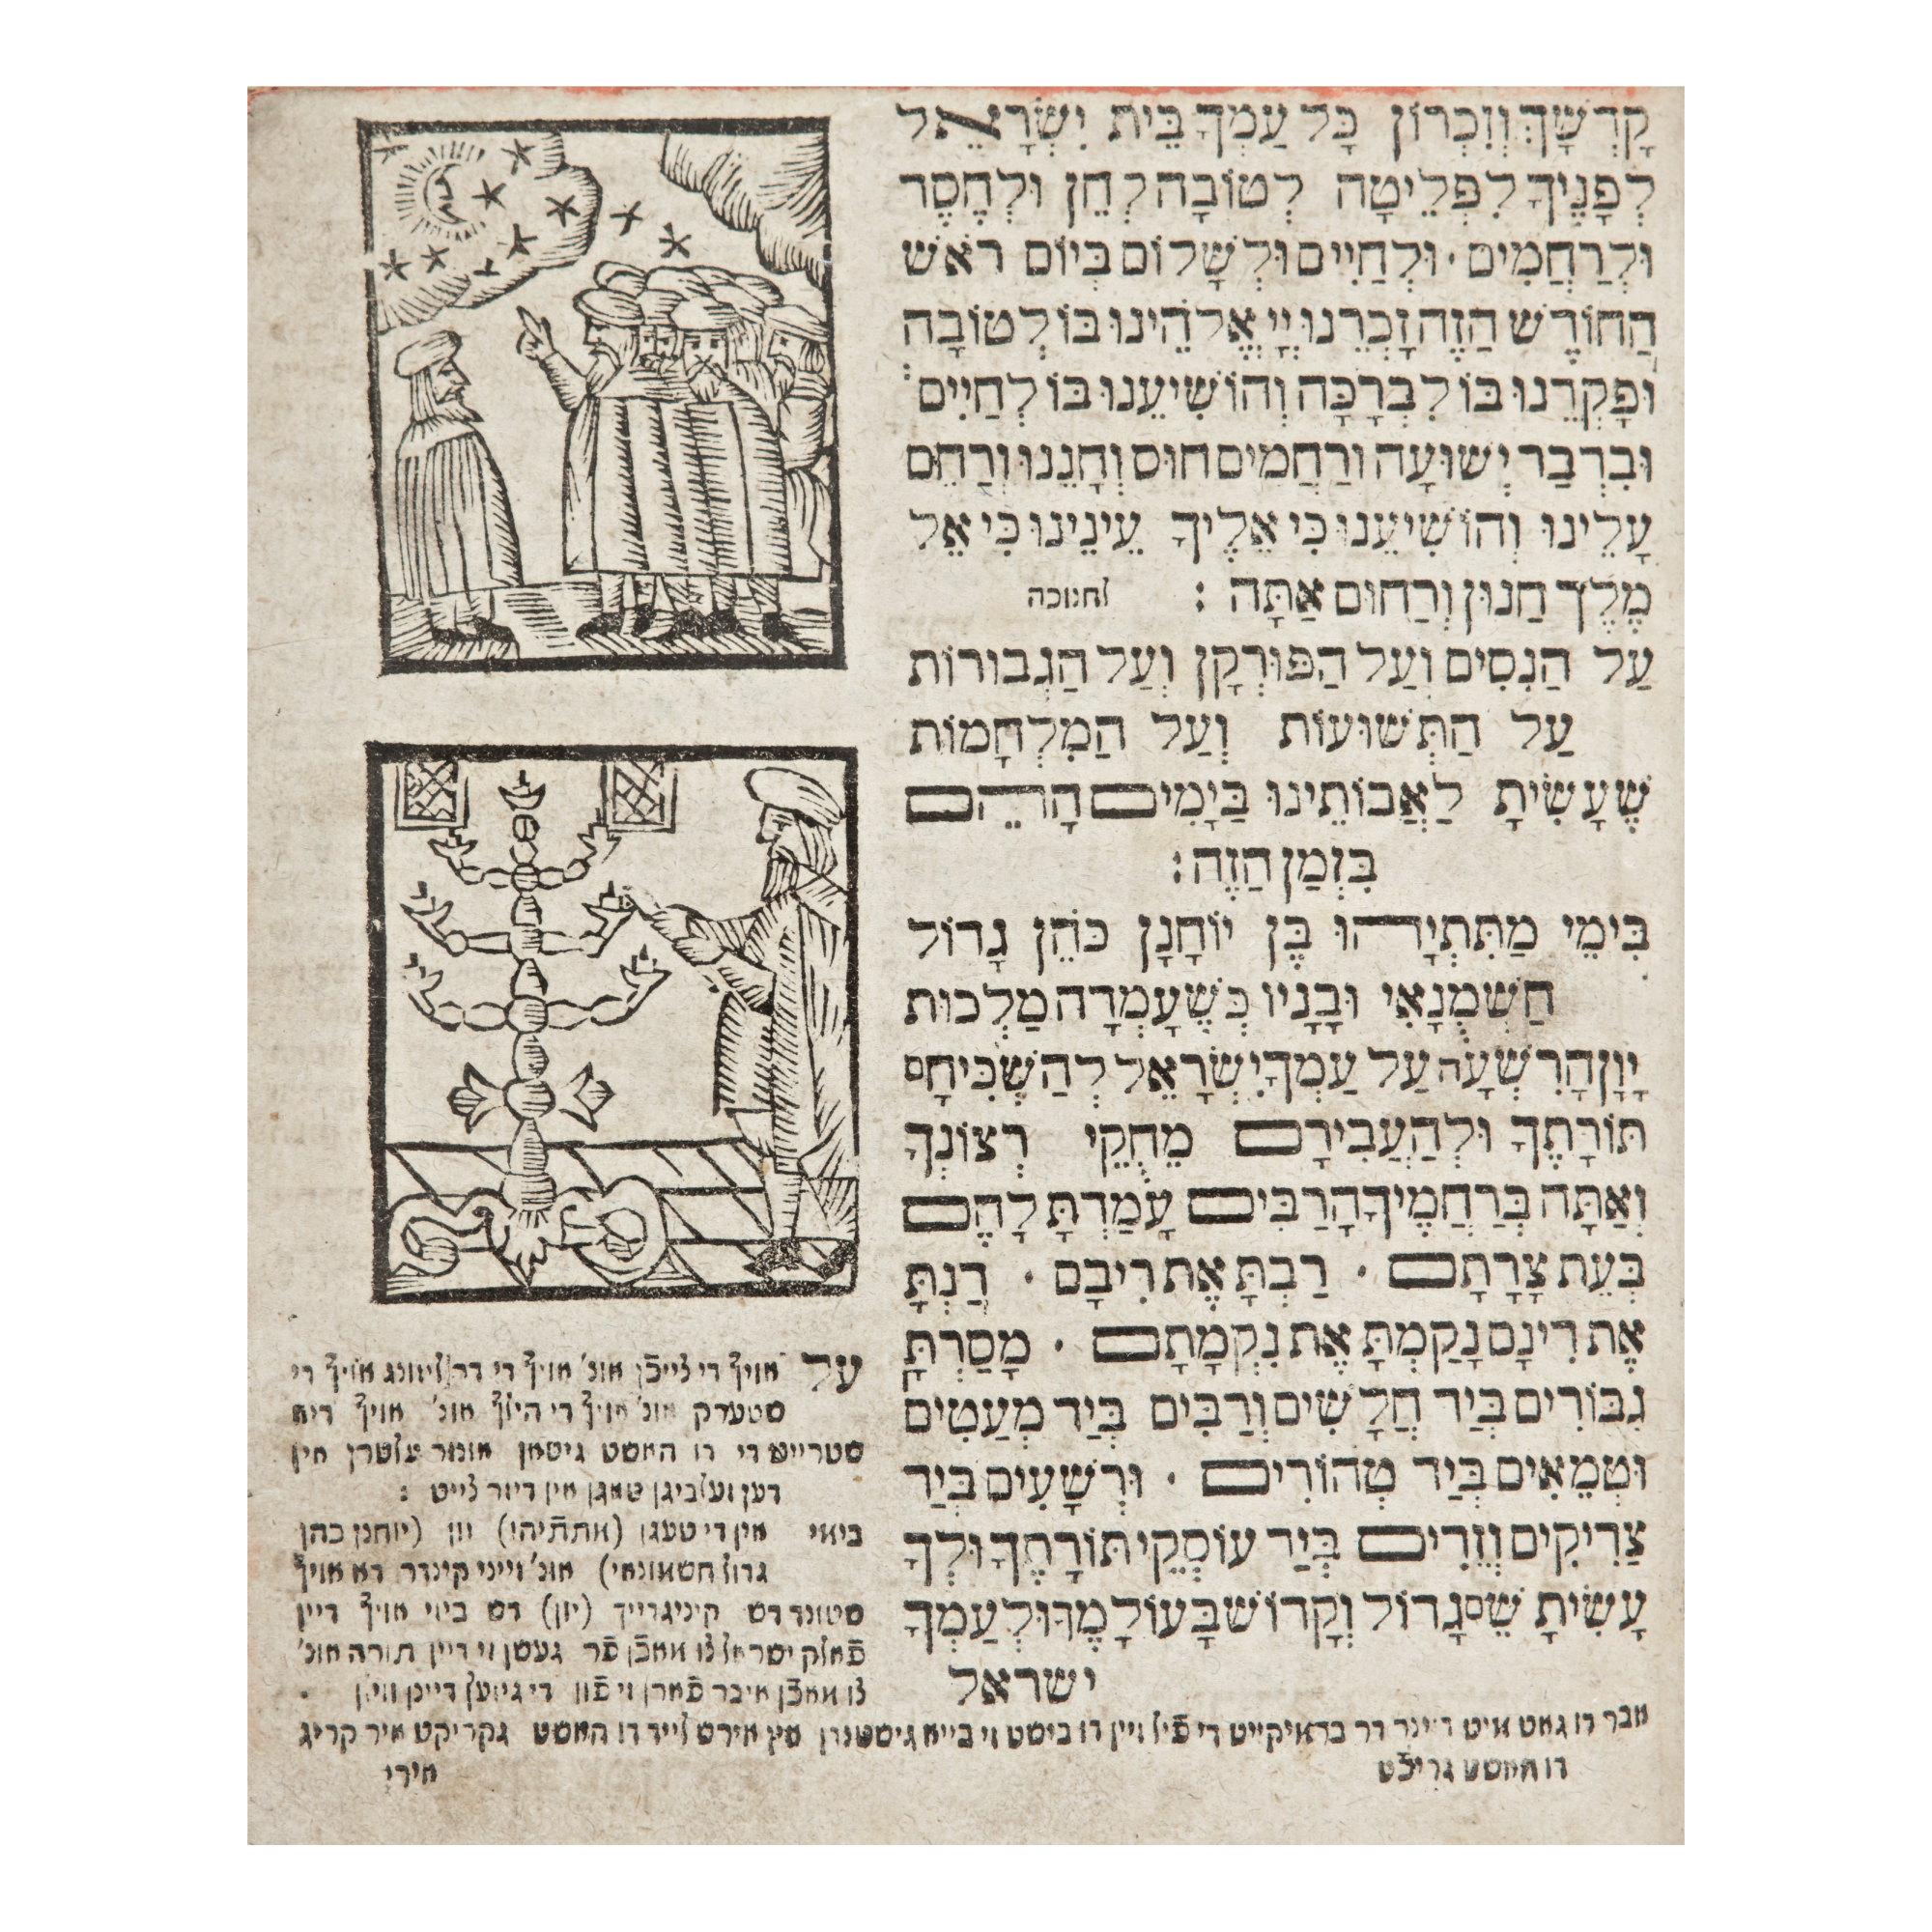 קָדְשֶׁךָ וְזִכְרוֹן כָּל עַמְּךָ בֵּית יִשְׂרָאֵל
לְפָנֶיךָ לִפְלֵיטָה לְטוֹבָה לְחֵן וּלְחֶסֶד
וּלְרַחֲמִים · וּלְחַיִים וּלְשָׁלוֹם בְּיוֹם רֹאשׁ
הַחוֹדֶשׁ הַזֶּה זָכְרֵנוּ יְיָ אֱלֹהֵינוּ בּוֹ לְטוֹבָה
וּפָקְדֵנוּ בוֹ לִבְרָכָה וְהוֹשִׁיעֵנוּ בּוֹ לְחַיִים
וּבִדְבַר יְשׁוּעָה וְרַחֲמִים חוּס וְחָנֵנוּ וְרַחֵם
עָלֵינוּ וְהוֹשִׁיעֵנוּ כִּי אֵלֶיךָ עֵינֵינוּ כִּי אֵל
מֶלֶךְ חַנוּן וְרַחוּם אַתָּה : לחנוכה
עַל הַנִסִים וְעַל הַפּוּרְקָן וְעַל הַגְבוּרוֹת
עַל הַתְּשׁוּעוֹת וְעַל הַמִלְחָמוֹת
שֶׁעָשִׂיתָ לַאֲבוֹתֵינוּ בַּיָמִים הָהֵם
בִּזְמַן הַזֶה :
בִּימֵי מַתִּתְיָהוּ בֶּן יוֹחָנָן כֹּהֵן גָדוֹל
חַשְׁמְנָאִי וּבָנָיו כְּשֶׁעָמְדָה מַלְכוּת
יָוָן הָרִשְׁעָה עַל עַמְּךָ יִשְׂרָאֵל לְהַשְׁכִּיחָם
תּוֹרָתֶךָ וּלְהַעֲבִירָם מֵחֻקֵי רְצוֹנְךָ
וְאַתָּה בְּרַחֲמֶיךָ הָרַבִּים עָמַדְתָּ לָהֶם
בְּעֵת צָרָתָם · רַבְתָּ אֶת רִיבָם · דַנְתָּ
אֶת דִינָם נָקַמְתָּ אֶת נִקְמָתָם · מָסַרְתָּ
גִבּוֹרִים בְּיַד חֲלָשִׁים וְרַבִּים בְּיַד מְעַטִים
וּטְמֵאִים בְּיַד טְהוֹרִים · וּרְשָׁעִים בְּיַד
צַדִיקִים וְזֵדִים בְּיַד עוֹסְקֵי תוֹרָתֶךָ וּלְךָ
עָשִׂיתָ שֵׁם גָדוֹל וְקָדוֹשׁ בָּעוֹלָמֶךָ וּלְעַמְּךָ
ישראל
על אויף די צייכן אונ' אויף די דר לויזונג אויף די
סטערק אונ' אויף די הילף אונ' אויף דיא
סטרייט די דו האסט גיטאן אונזר עלטרן אין
דען זעלביגן טאגן אין דיזר צייט :
בימי אין די טעגן (מתתיהו) זון (יוחנן כהן
גדול חשמונאי) אונ' זייני קינדר דא אויף
סטונד דש קיניגרייך (יון) דש ביזי אויף דיין
פאלק ישראל צו מאכן פר געסן זי דיין תורה אונ'
צו מאכן איבר פארן זי פון די גיזעץ דיינן ווילן ·
אבר דו גאט מיט דיינר דר ברמיקייט די פיל זיין דו ביסט זי בייא גיסטנדן אין אירם לייד דו האסט גקריקט איר קריג
דו האסט גריכט אירי